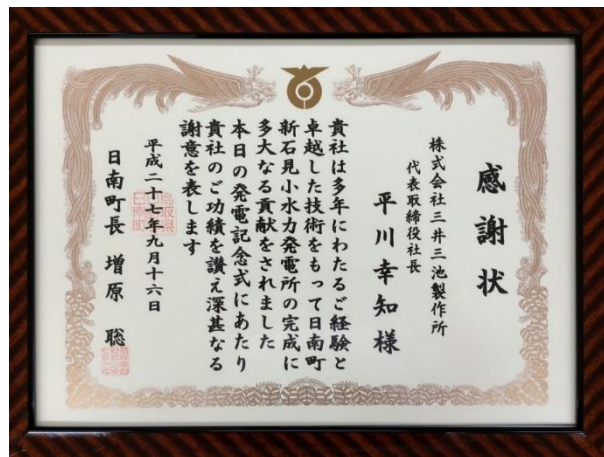 感謝状
株式会社三井三池製作所
代表取締役社長
平川幸知様
貴社は多年にわたるご経験と
卓越した技術をもって日南町
新石見小水力発電所の完成に
多大なる貢献をされました
本日の発電記念式にあたり
貴社のご功績を讃え深甚なる
謝意を表します
平成二十七年九月十六日
日南町長 増原 聡